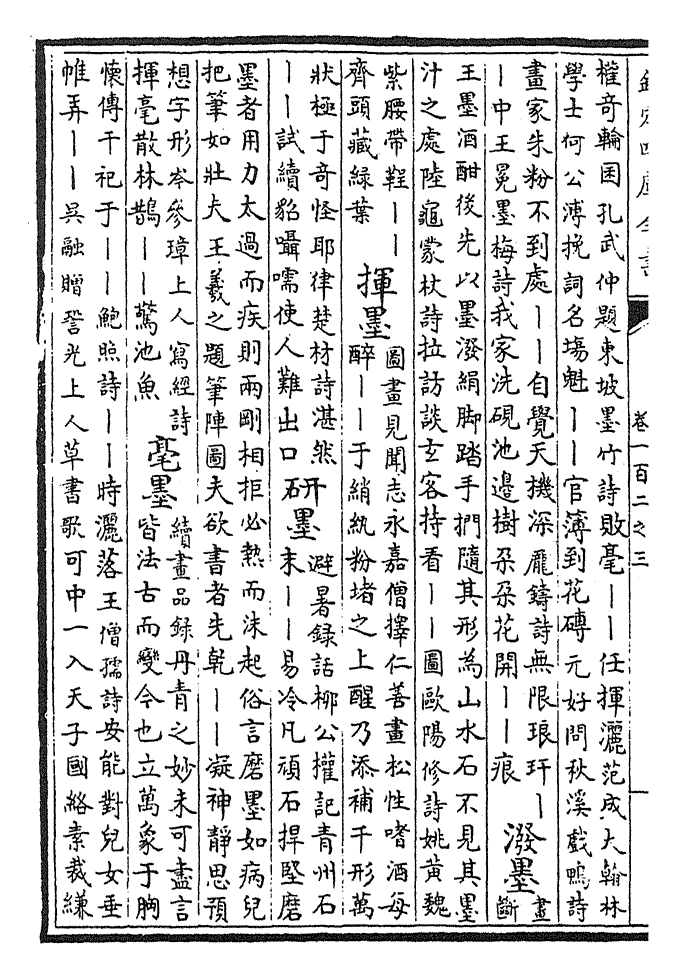 欽定四庫全書
卷一百二之三
權奇輪囷孔武仲題東坡墨竹詩敗毫丨丨任揮灑范成大翰林
學士何公溥挽詞名塲魁丨丨官簿到花磚元好問秋溪戲鴨詩
畫家朱粉不到處丨丨自覺天機深龎鑄詩無限琅玕丨
丨中王冕墨梅詩我家洗硯池邊樹朵朵花開丨丨痕
潑墨
畫
斷
王墨酒酣後先以墨潑絹脚踏手捫隨其形為山水石不見其墨
汁之處陸龜蒙杖詩拉訪談玄客持看丨丨圖歐陽修詩姚黃魏
紫腰帶鞓丨丨
齊頭藏緑葉
揮墨
圖畫見聞志永嘉僧擇仁善畫松性嗜酒每
醉丨丨于綃紈粉堵之上醒乃添補千形萬
狀極于奇怪耶律楚材詩湛然
丨丨試續貂囁嚅使人難出口
研墨
避暑録話柳公權記青州石
末丨丨易冷凡頑石捍堅磨
墨者用力太過而疾則兩剛相拒必熱而沫起俗言磨墨如病兒
把筆如壯夫王羲之題筆陣圖夫欲書者先乾丨丨凝神靜思預
想字形岑參璋上人寫經詩
揮毫散林鵲丨丨驚池魚
毫墨
續畫品録丹青之妙未可盡言
皆法古而變今也立萬象于胸
懷傳千祀于丨丨鮑照詩丨丨時灑落王僧孺詩安能對兒女垂
帷弄丨丨吳融贈䛒光上人草書歌可中一入天子國絡素裁縑